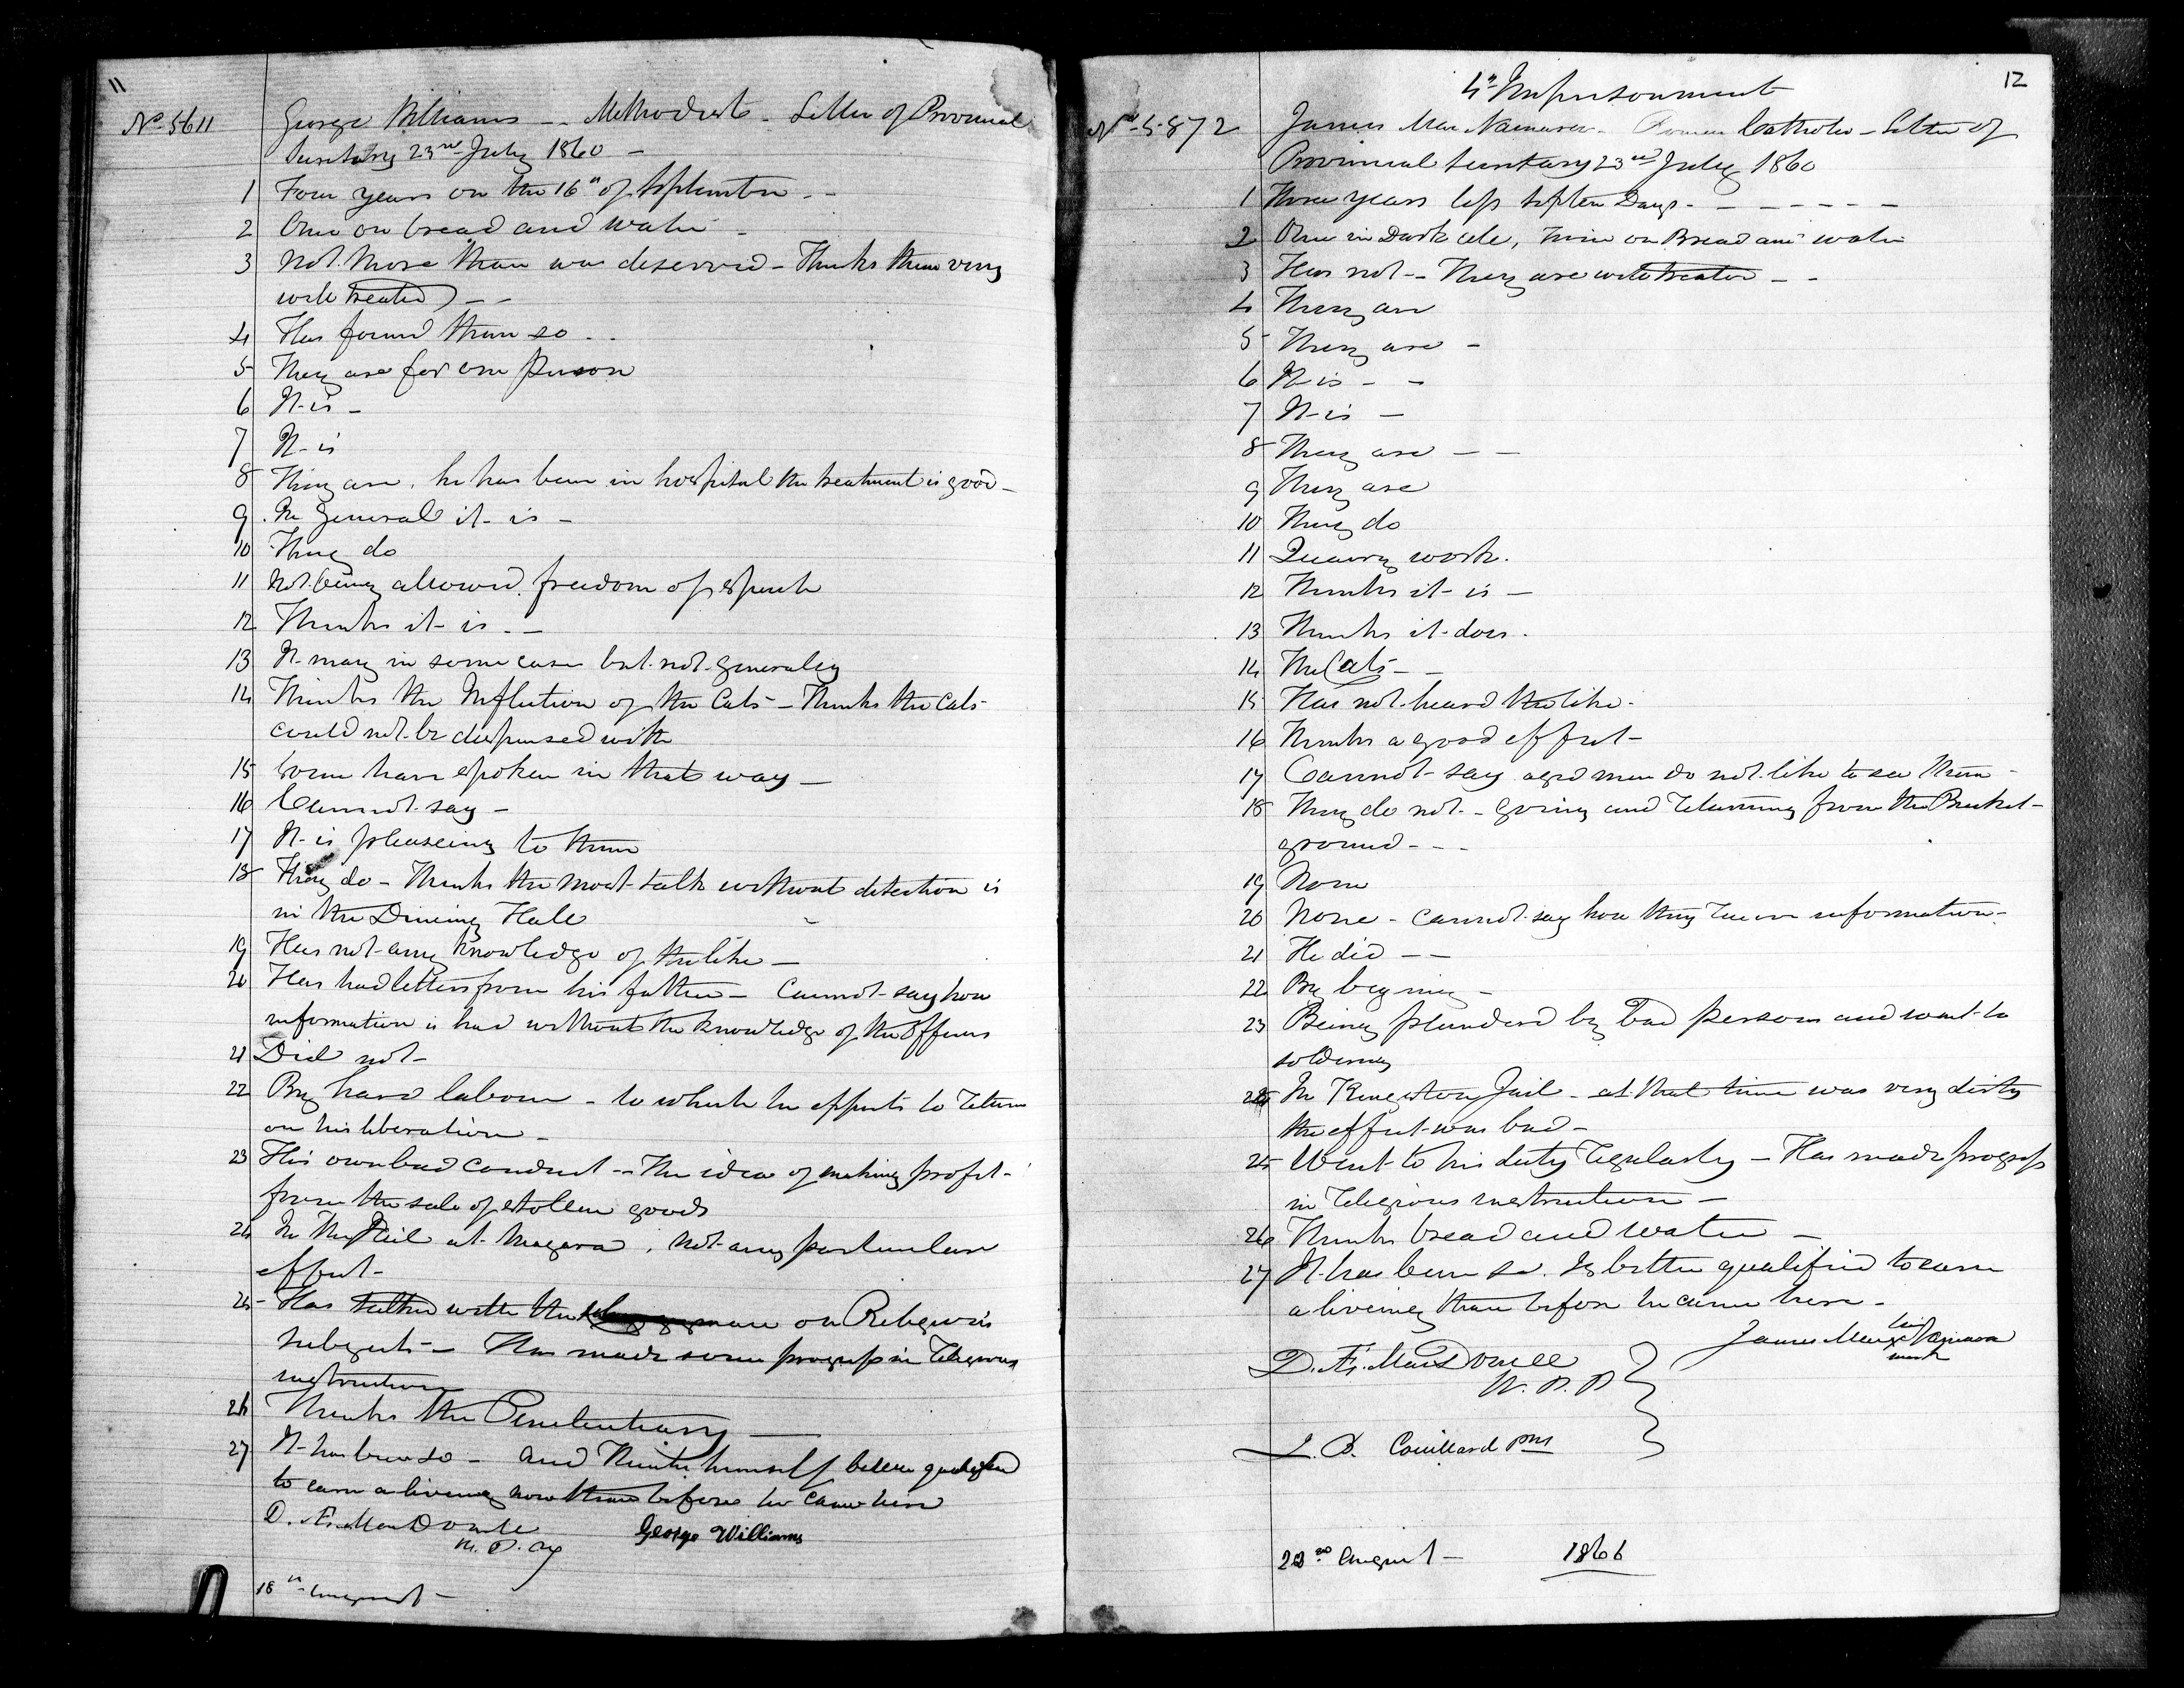 11
No 5611 George Williams -- Methodist - Letter of Provincial
Secretary 23rd July 1860 -
1 Four years on the 16th of September --
2 Once on bread and water -
3 Not More than was deserved - Thinks them very
well treated --
4 Has found them so --
5 They are for one person
6 It is -
7 It is
8 They are, he has been in hospital the treatment is good -
9 In General it is -
10 They do
11 Not being allowed freedom of speech
12 Thinks it is --
13 It may in some cases but not generaley
14 Thinks the Infliction of the Cats - Thinks the Cats
could not be dispensed with
15 Some have spoken in that way -
16 Cannot say -
17 It is pleaseing to them
18 They do - Thinks the most talk without detection is
in the Dineing Hall
19 Has not any knowledge of the like -
20 Has had letters from his father - Cannot say how
information is had without the knowledge of the officers
21 Did not -
22 By hard labour - to which he expects to return
on his liberation -
23 His own bad conduct -- The idea of making profit
from the sale of stollen goods
24 In the Jail at Niagara, not any particular
effect -
25 Has talked with the on Religious
subjects - Has made some progress in religious
instruction
26 Thinks the Penitentiary -
27 It has been so - and Thinks himself better qualified
to earn a liveing now than before he came here
D. Æ. MacDonell George Williams
18th August -
12
4th Imprisonment
No 5872 James Mac Namara - Roman Catholic - Letter of
Provincial Secretary 23rd July 1860
1 Three years less Days - - - - - - -
2 Once in Dark cell, on Bread and water
3 Has not -- They are well treated --
4 They are
5 They are -
6 It is - -
7 It is -
8 They are - -
9 They are
10 They do
11 Quarry work.
12 Thinks it is -
13 Thinks it does.
14 The Cats - -
15 Has not heard the like -
16 Thinks a good effect -
17 Cannot say aged men do not like to see them -
18 They do not - going and returning from the Bucket
ground - - -
19 None
20 None - cannot say how they information -
21 He did - -
22 By beging -
23 Being plundered by bad persons and went to
soldering
24 In Kingston Jail - at that time was very dirty
the effect was bad -
25 Went to his duty regularly - Has made progress
in religious instruction -
26 Thinks bread and water -
27 It has been so. Is better qualified to earn
a liveing than before he came here -
James Mac his x mark Namara
D. Æ. MacDonell
W. P. P
Couillard
22nd August - 1860